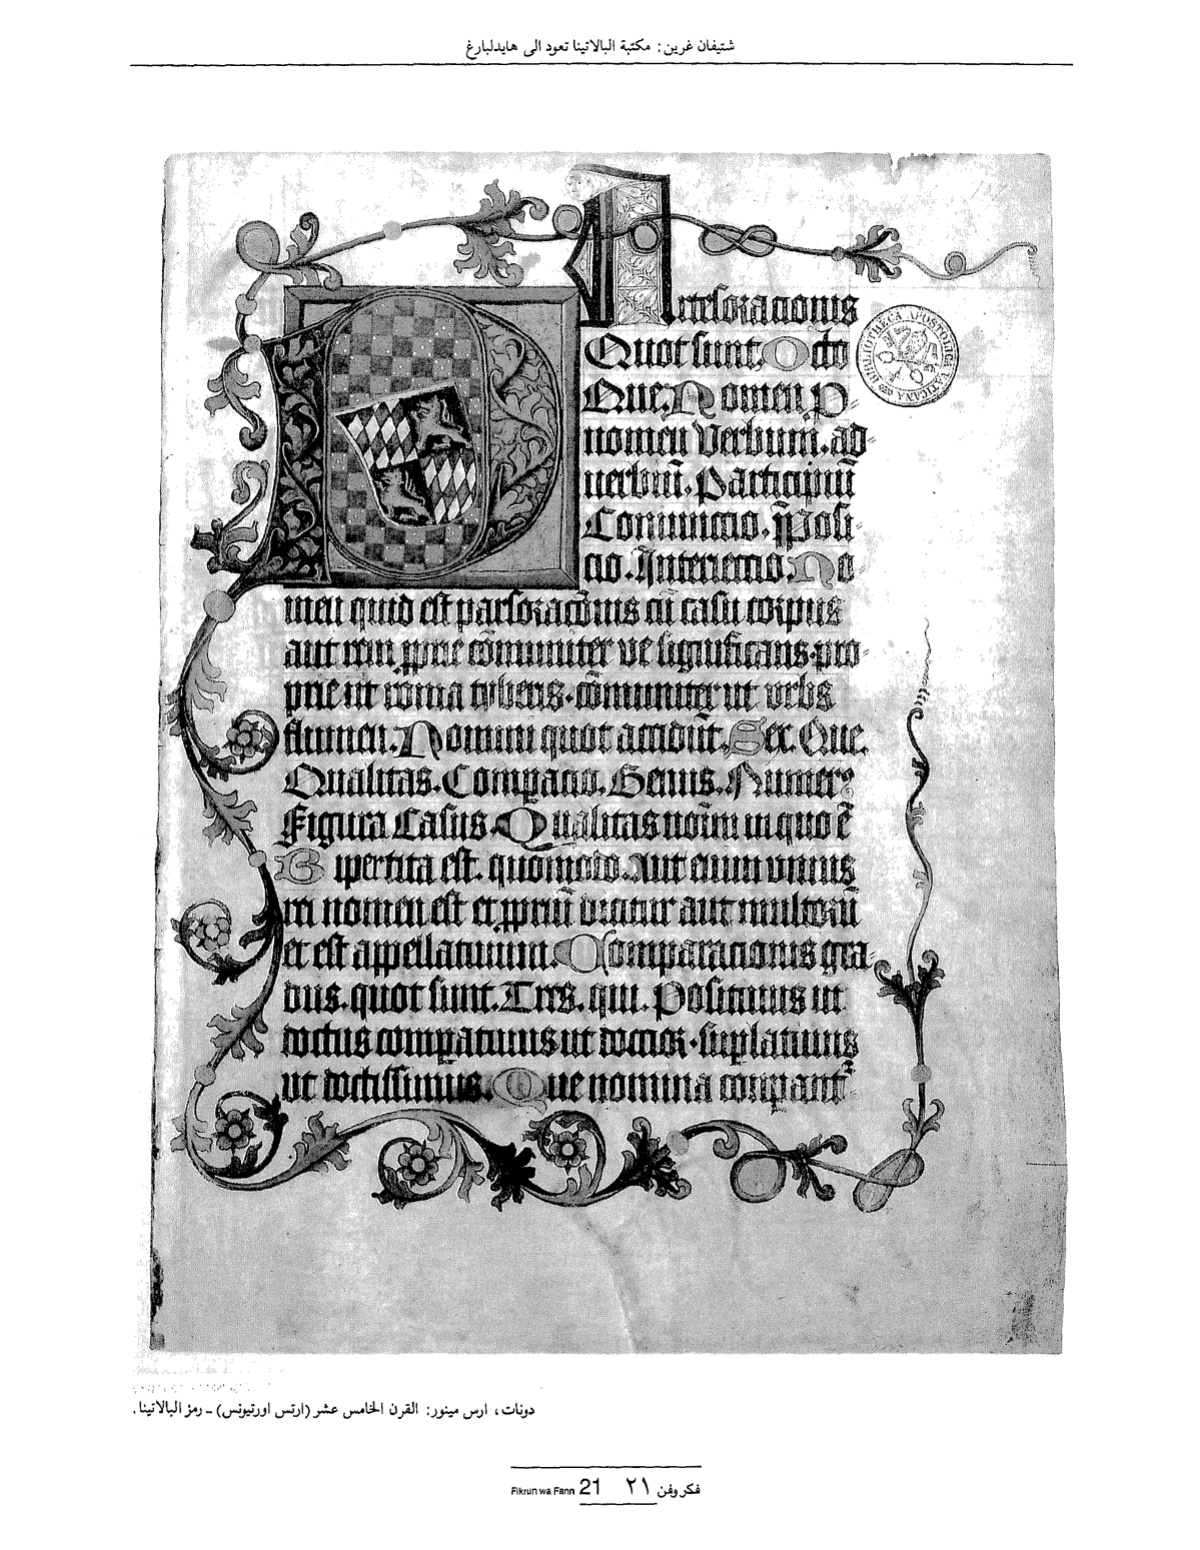 شتيفان غرين: مكتبة البالاتينا تعود الى هايدلبارغ
Partes orationis
Quot sunt. Octo
Que. Nomen p̄
nomen Verbum. ad
uerbiū. Participiū
Coniunctio. p̄posi
cio. Interiectio. No
men quid est pars orac̄onis cū casu corpus
aut rem p̱prie cōmuniter ve significans. pro
prie ut roma tyberis. cōmuniter ut urbs
flumen. Nomini quot accidūt. Sex. Que.
Qualitas. Compacio. Genus. Numerꝰ
Figura Casus. Qualitas noīm in quo ē
Bipertita est. quomodo. Aut enim unius
rei nomen est et p̱priū dicitur aut multoꝝ
et est appellatiuum. Comparacionis gra
dus. quot sunt. Tres. qui. Positiuus ut
doctus compatiuus ut doctior. suplatiuus
ut doctissimus. Que nomina conpant̄
BIBLIOTHECA APOSTOLICA VATICANA
دونات، ارس مينور: القرن الخامس عشر (ارتس اورتيونس) ـ رمز البالاتينا.
Fikrun wa Fann 21 ٢١ فكر وفن